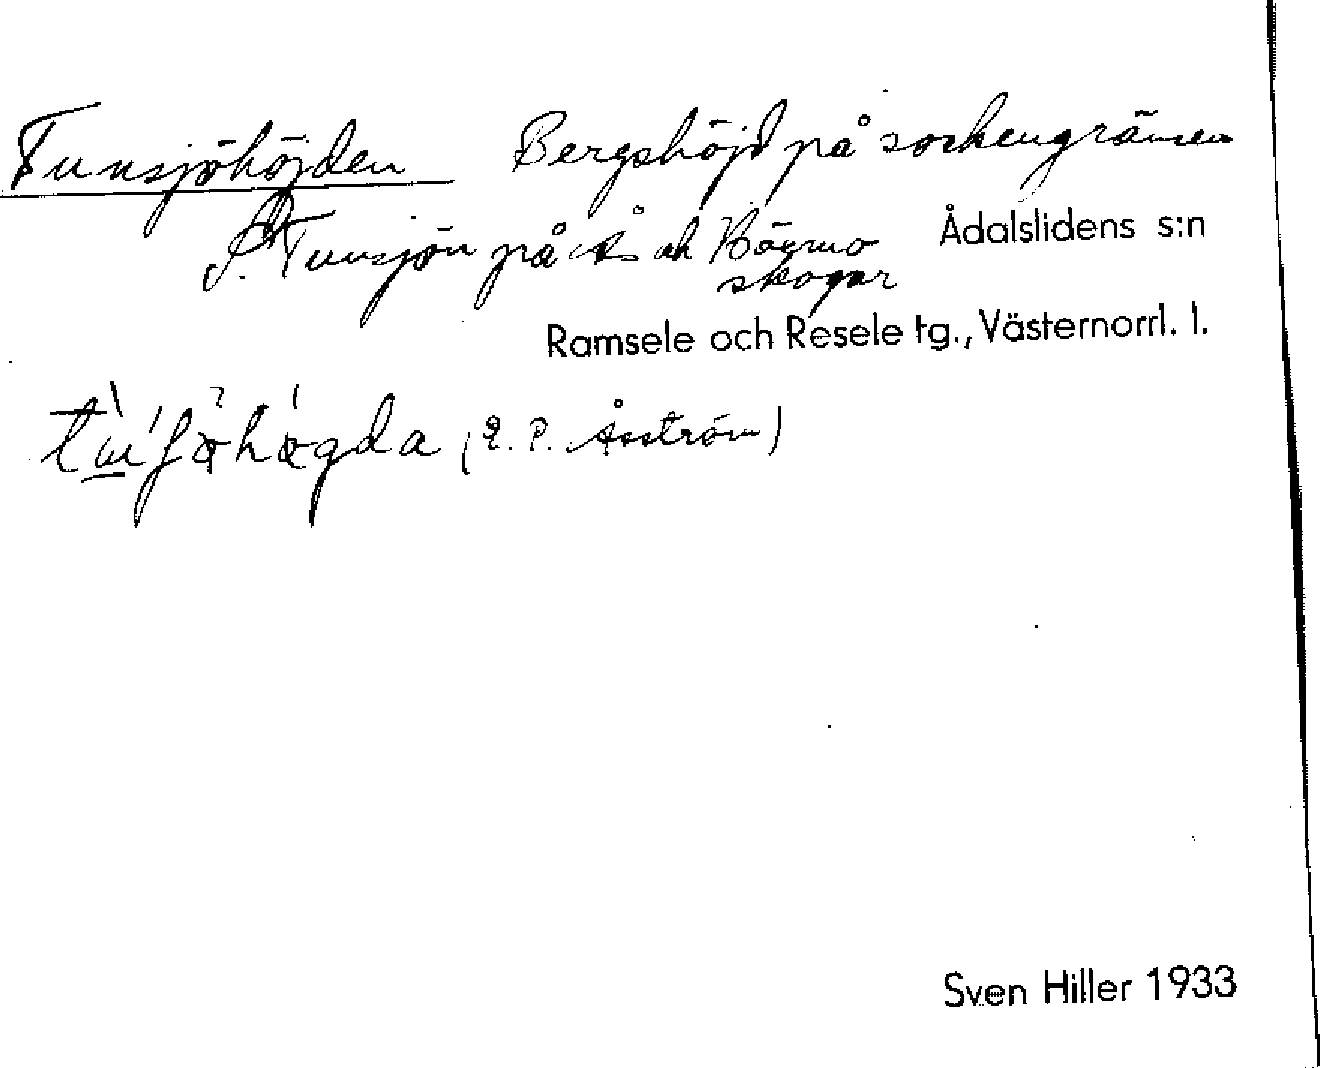 Tunsjöhöjden Bergshöjd på sockengränsen
S. Tunsjön på Ås och Högmo
skogar
Ådalslidens s:n
Ramsele och Resele tg., Västernorrl. l.
(E. P. Åström)
Sven Hiller 1933